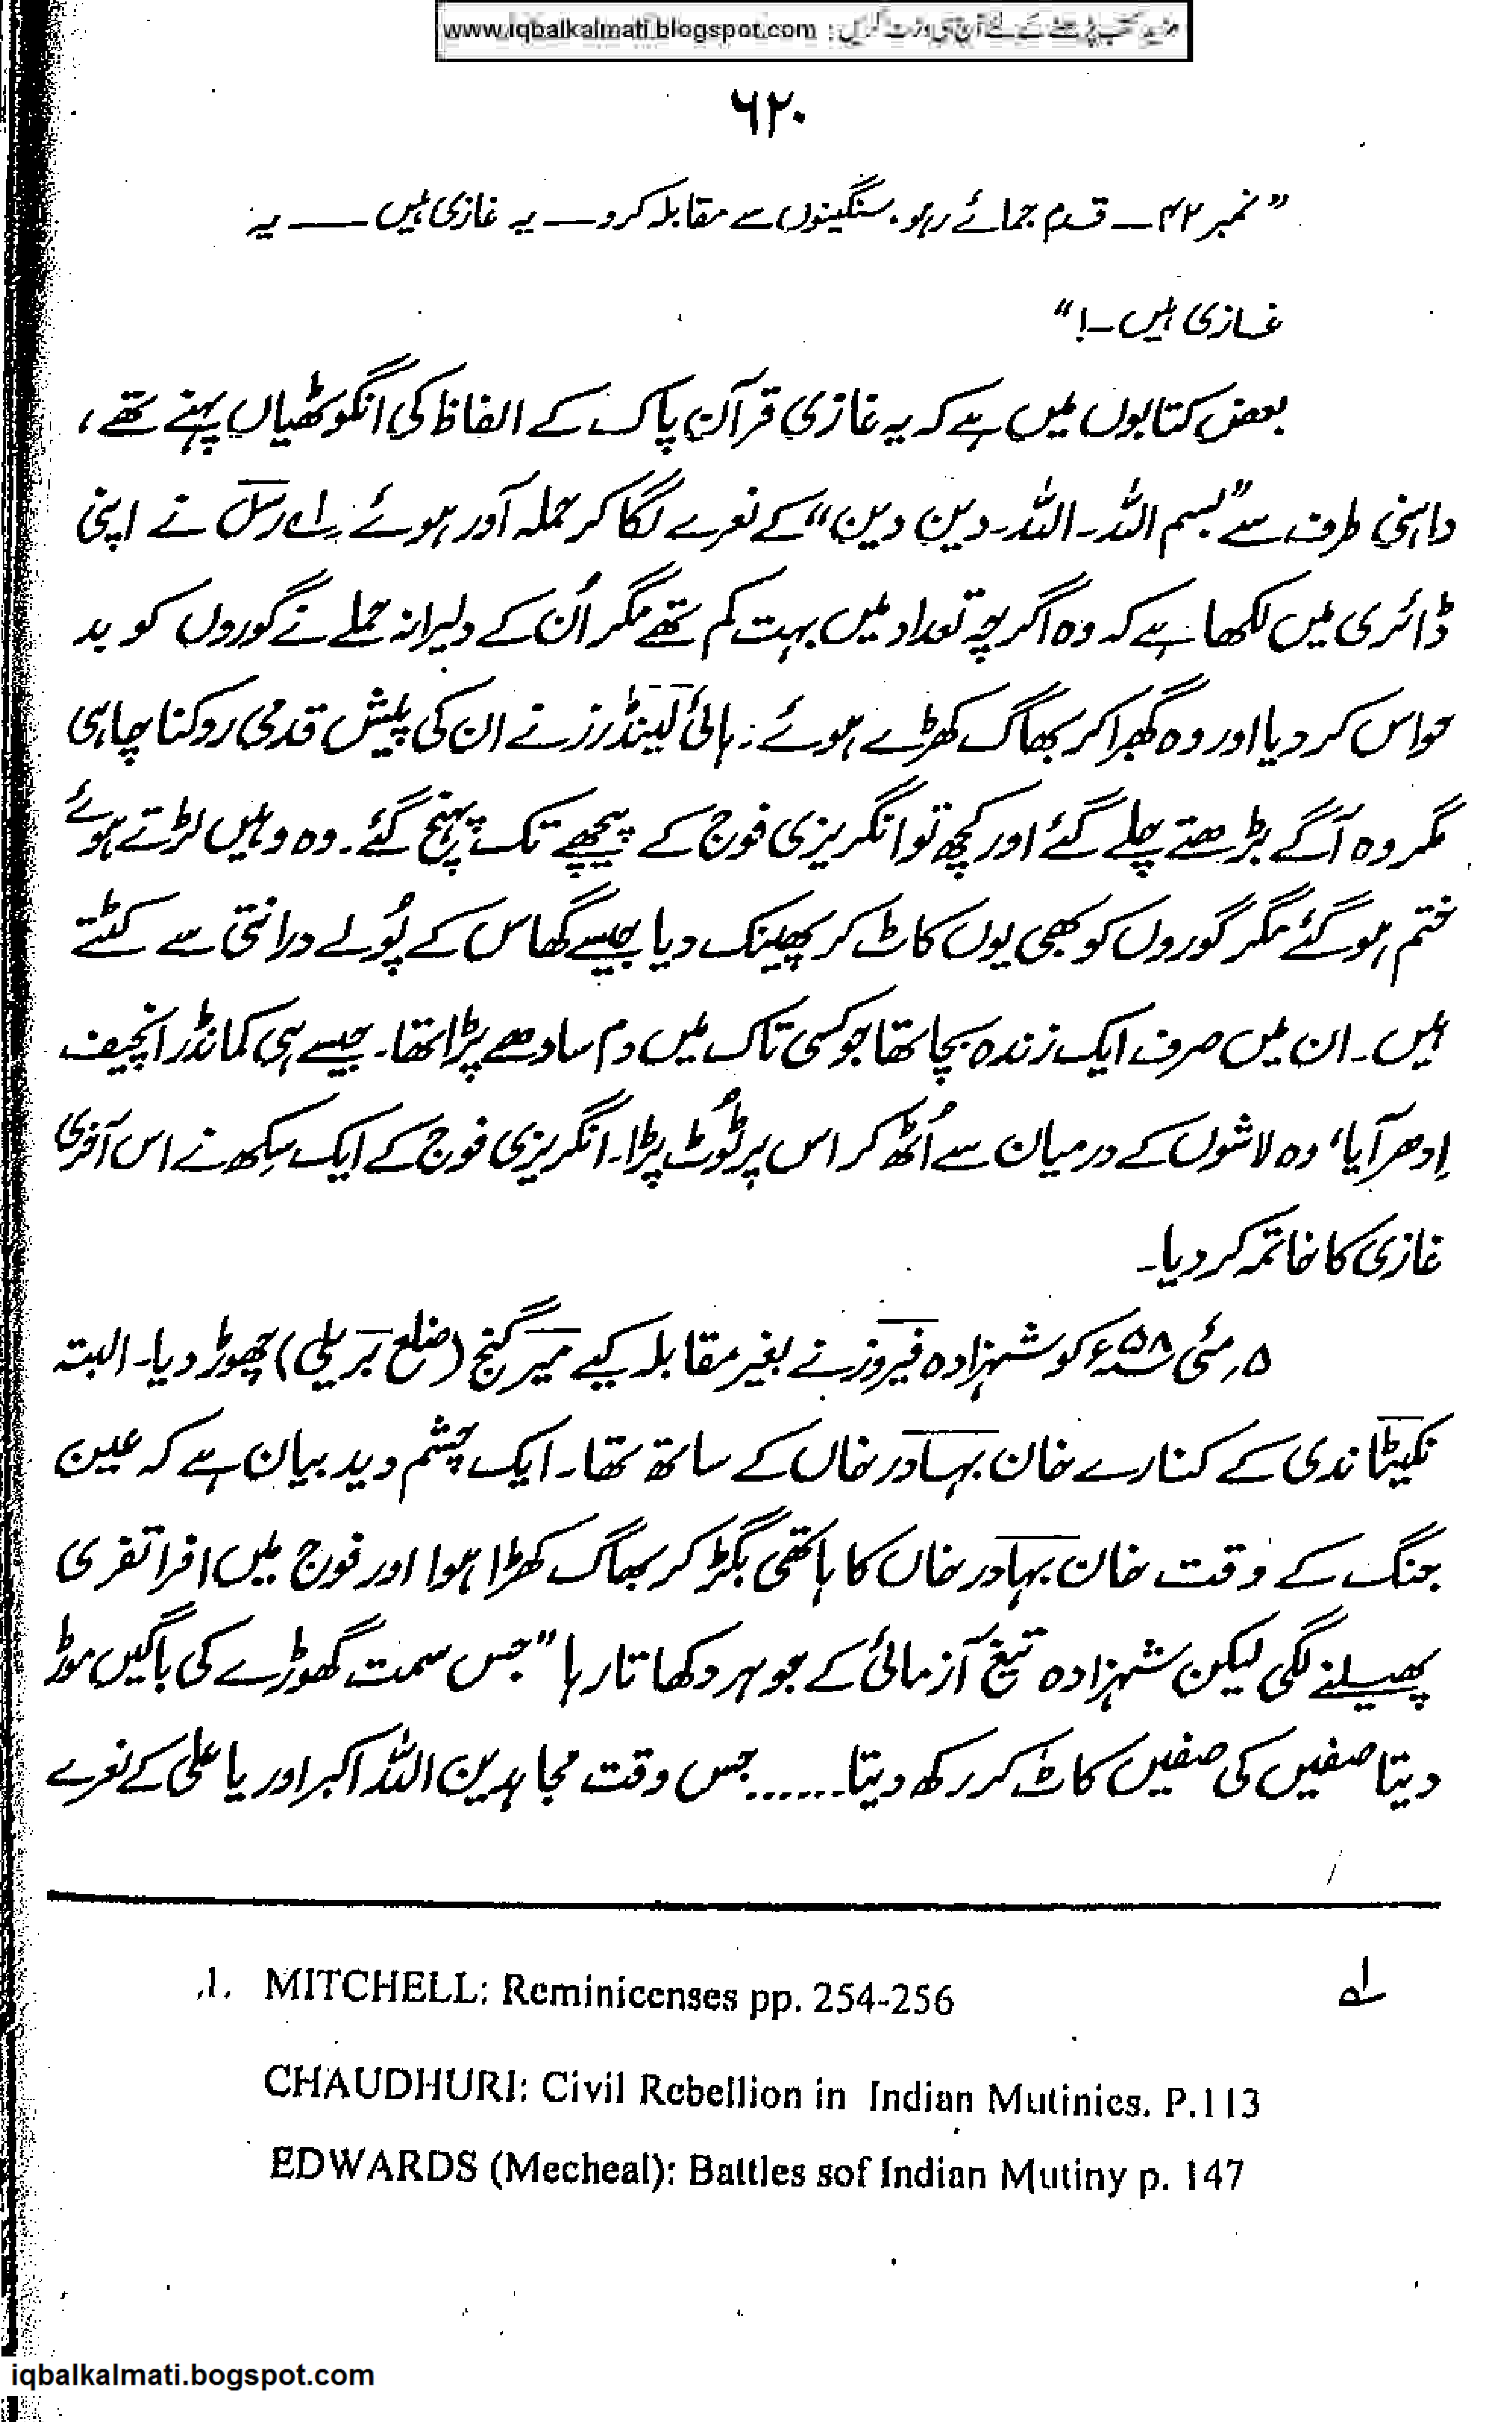 مزید کتب پڑھنے کے لئے آج ہی وزٹ کریں : www.iqbalkalmati.blogspot.com
۶۲۰
”نمبر ۴۲ ــ قدم جمائے رہو، سنگینوں سے مقابلہ کرو ــ یہ غازی ہیں ــــ یہ
غازی ہیں ــ!“
بعض کتابوں میں ہے کہ یہ غازی قرآن پاک کے الفاظ کی انگوٹھیاں پہنے تھے،
داہنی طرف سے ”بسم اللہ۔ اللہ۔ دین دین“ کے نعرے لگا کر حملہ آور ہوئے۔ لہ رسل نے اپنی
ڈائری میں لکھا ہے کہ وہ اگرچہ تعداد میں بہت کم تھے مگر اُن کے دلیرانہ حملے نے گوروں کو بد
حواس کر دیا اور وہ گھبرا کر بھاگ کھڑے ہوئے: ہائی لینڈرز نے ان کی پیش قدمی روکنا چاہی
مگر وہ آگے بڑھتے چلے گئے اور کچھ تو انگریزی فوج کے پیچھے تک پہنچ گئے۔ وہ وہیں لڑتے ہوئے
ختم ہو گئے مگر گوروں کو بھی یوں کاٹ کر پھینک دیا جیسے گھاس کے پُولے درانتی سے کٹتے
ہیں۔ ان میں صرف ایک زندہ بچا تھا جو کسی تاک میں دم سادھے پڑا تھا۔ جیسے ہی کمانڈر انچیف
اِدھر آیا، وہ لاشوں کے درمیان سے اُٹھ کر اس پر ٹُوٹ پڑا۔ انگریزی فوج کے ایک سِکھ نے اس آخری
غازی کا خاتمہ کر دیا۔
۵؍ مئی ۵۸ء کو شہزادہ فیروز نے بغیر مقابلہ کیے میر گنج (ضلع بریلی) چھوڑ دیا۔ البتہ
نکیٹا ندی کے کنارے خان بہادر خاں کے ساتھ تھا۔ ایک چشم دید بیان ہے کہ عین
جنگ کے وقت خان بہادر خاں کا ہاتھی بگڑ کر بھاگ کھڑا ہوا اور فوج میں افراتفری
پھیلنے لگی لیکن شہزادہ تیغ آزمائی کے جوہر دکھاتا رہا ”جس سمت گھوڑے کی باگیں موڑ
دیتا صفیں کی صفیں کاٹ کر رکھ دیتا...... جس وقت مجاہدین اللہ اکبر اور یا علی کے نعرے
لہ 1. MITCHELL: Reminicenses pp. 254-256
CHAUDHURI: Civil Rebellion in Indian Mutinies. P.113
EDWARDS (Mecheal): Battles sof Indian Mutiny p. 147
iqbalkalmati.bogspot.com